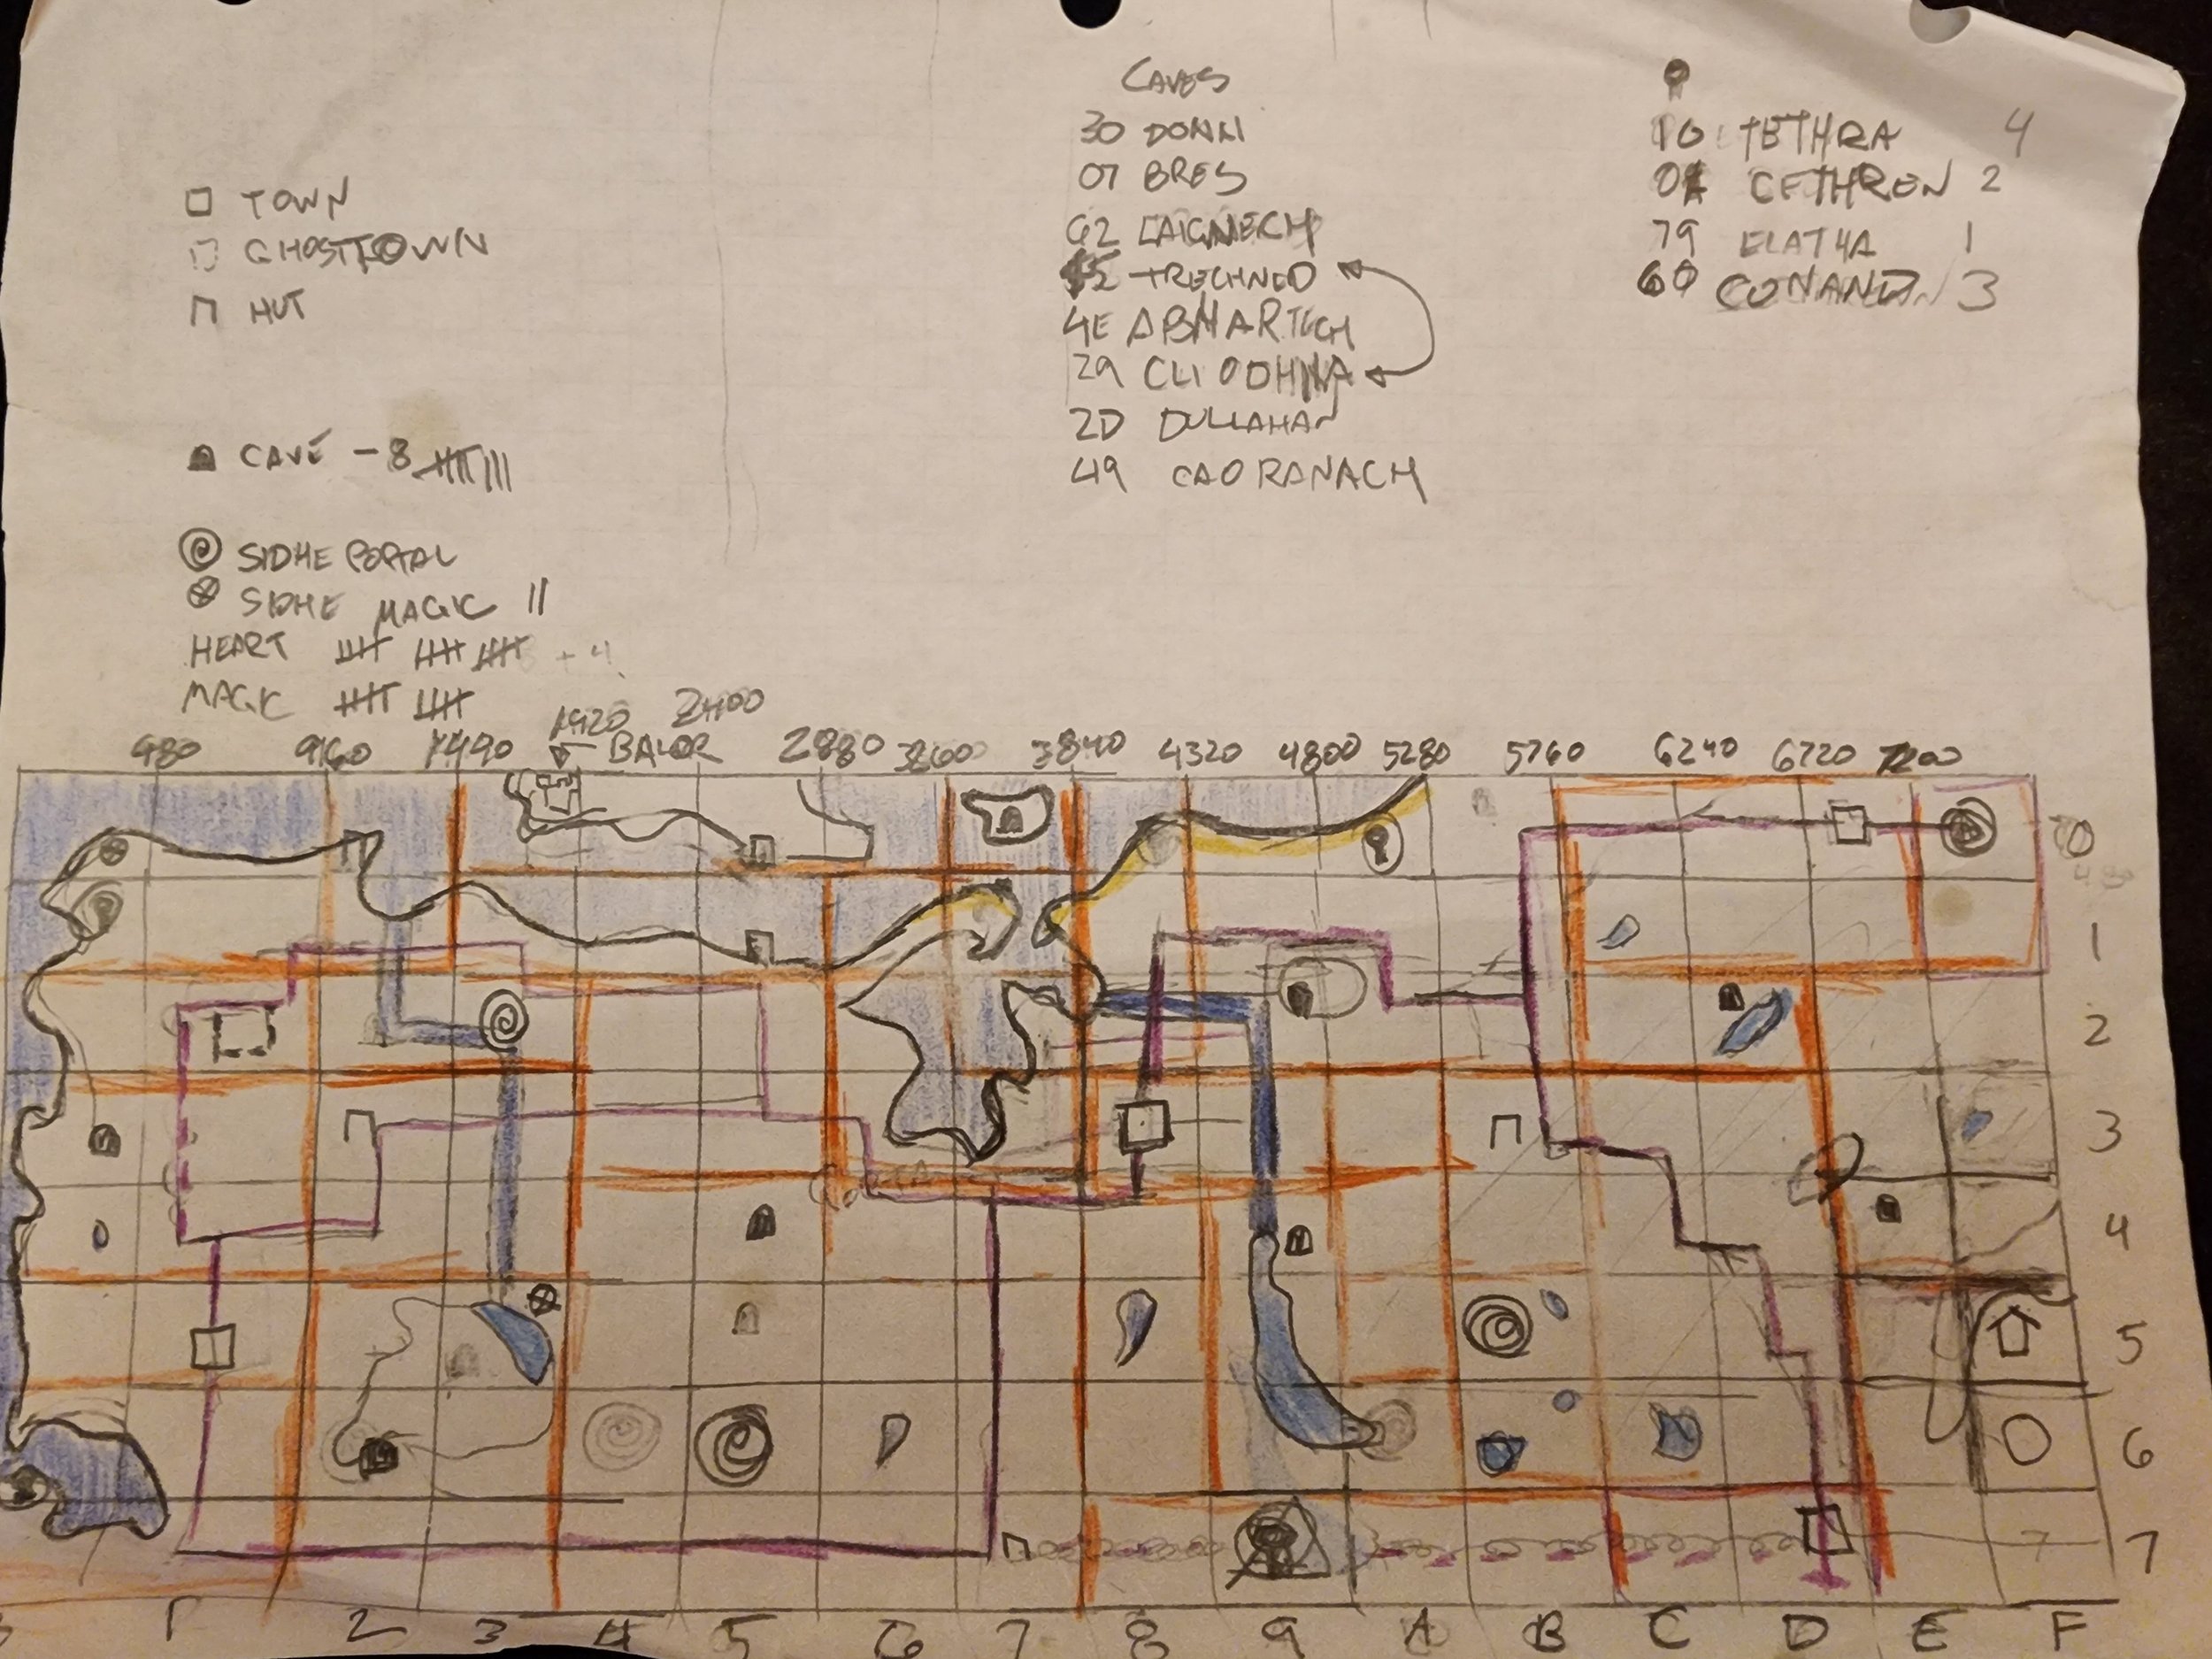 CAVES
30 DONN
07 BRES
62 LAIGNECH
TRECHNED
4E ABHARTECH
29 CLIODHNA
2D DULLAHAN
49 CAORANACH
10 TETHRA 4
CETHREN 2
79 ELATHA 1
60 CONAND 3
TOWN
GHOSTTOWN
HUT
CAVE - 8
SIDHE PORTAL
SIDHE MAGIC
HEART + 4
MAGIC
1920 2400
480 960 1440 BALOR 2880 3360 3840 4320 4800 5280 5760 6240 6720 7200
0
1
2
3
4
5
6
7 7
1 2 3 4 5 6 7 8 9 A B C D E F